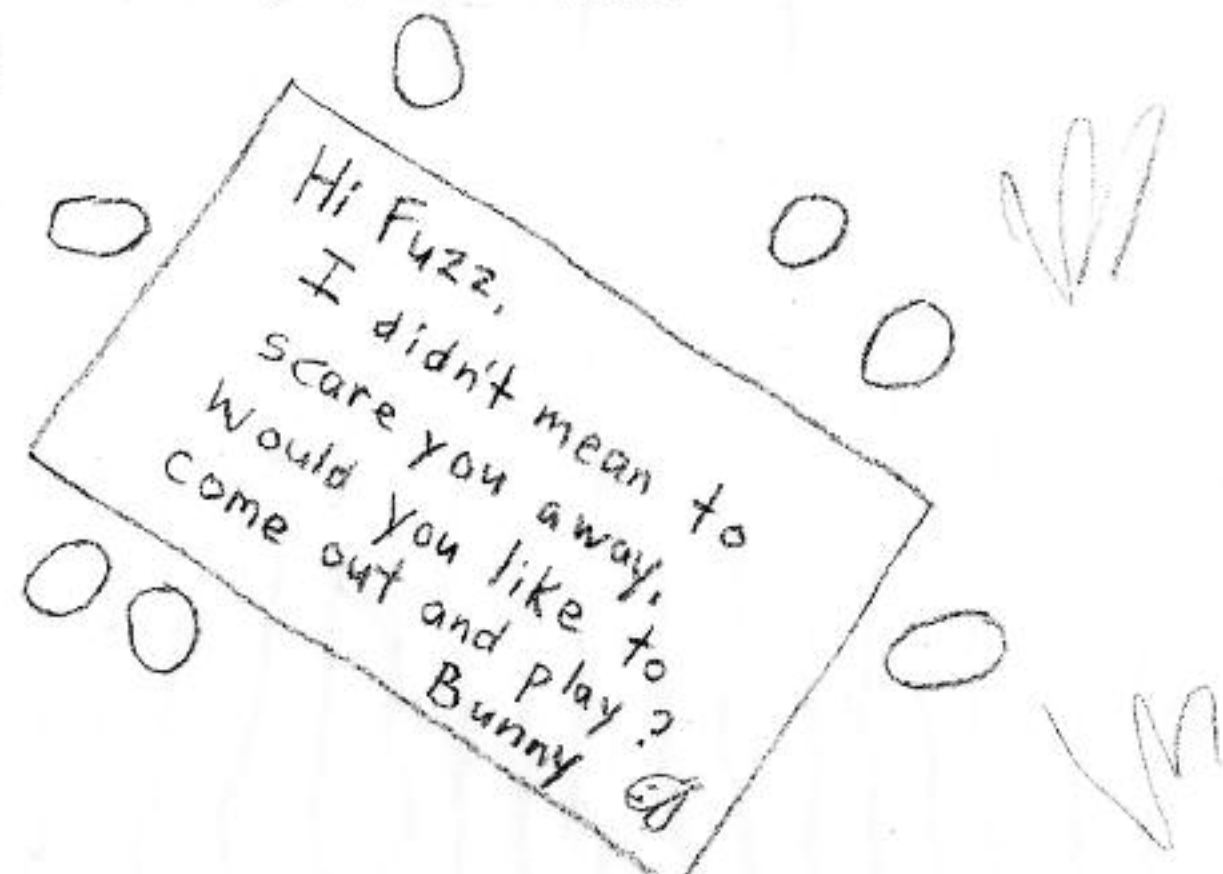 Hi Fuzz,
I didn't mean to
scare you away,
Would you like to
come out and play?
Bunny